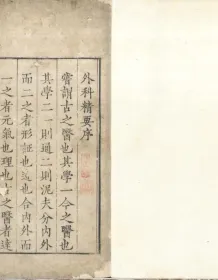 外科精要序
嘗謂古之醫也其學一今之醫也
其學二一則通二則泥夫分內外
而二之者形証也迹也合內外而
一之者元氣也理也古之醫者達